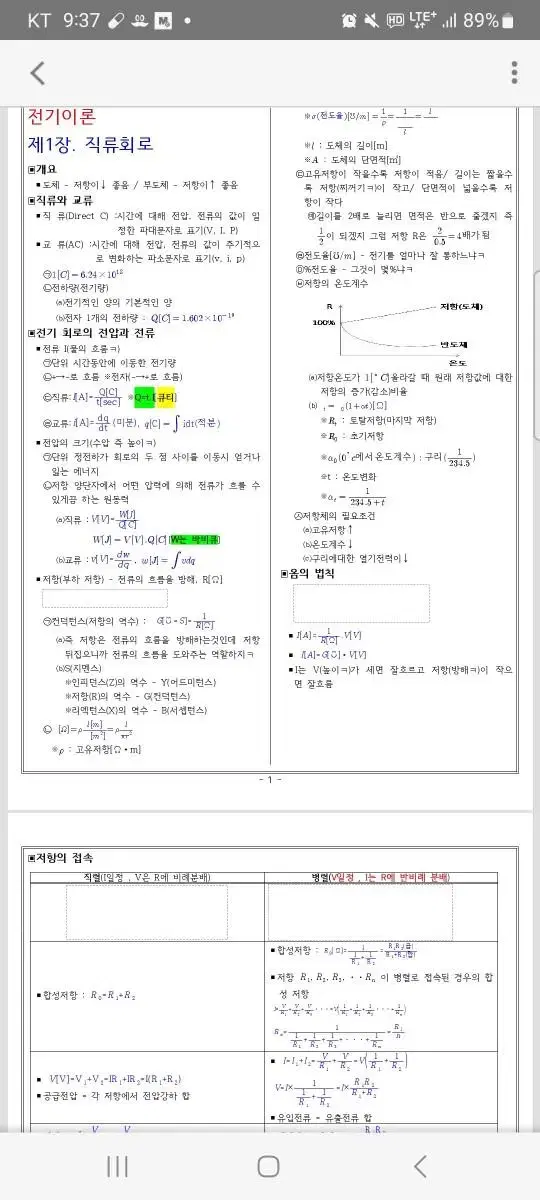 KT 9:37
HD LTE+ 89%
전기이론
제1장. 직류회로
▣개요
▪도체 - 저항이↓ 좋음 / 부도체 - 저항이↑ 좋음
▣직류와 교류
▪직 류(Direct C) :시간에 대해 전압, 전류의 값이 일
정한 파대문자로 표기(V, I, P)
▪교 류(AC) :시간에 대해 전압, 전류의 값이 주기적으
로 변화하는 파소문자로 표기(v, i, p)
㉠1[C]=6.24×10¹²
㉡전하량(전기량)
⒜전기적인 양의 기본적인 양
⒝전자 1개의 전하량 : Q[C]=1.602×10⁻¹⁹
▣전기 회로의 전압과 전류
▪전류 I(물의 흐름ㅋ)
㉠단위 시간동안에 이동한 전기량
㉡+→-로 흐름 ※전자(-→+로 흐름)
㉢직류:I[A]=Q[C]/t[sec] ※Q=t.I[큐티]
㉣교류:i[A]=dq/dt (미분), q[C]=∫idt(적분)
▪전압의 크기(수압 즉 높이ㅋ)
㉠단위 정전하가 회로의 두 점 사이를 이동시 얻거나
잃는 에너지
㉡저항 양단자에서 어떤 압력에 의해 전류가 흐를 수
있게끔 하는 원동력
⒜직류 : V[V]=W[J]/Q[C]
W[J]=V[V].Q[C][W는 바비큐]
⒝교류 : v[V]=dw/dq, w[J]=∫vdq
▪저항(부하 저항) - 전류의 흐름을 방해, R[Ω]
㉠컨덕턴스(저항의 역수) : G[℧=S]=1/R[Ω]
⒜즉 저항은 전류의 흐름을 방해하는것인데 저항
뒤집으니까 전류의 흐름을 도와주는 역할하지ㅋ
⒝S(지멘스)
※인피던스(Z)의 역수 - Y(어드미턴스)
※저항(R)의 역수 - G(컨덕턴스)
※리액턴스(X)의 역수 - B(서셉턴스)
㉡ [Ω]=ρ l[m]/[m²]=ρ l/πr²
※ρ : 고유저항[Ω•m]
※σ(전도율)[℧/m]=1/ρ=
※l : 도체의 길이[m]
※A : 도체의 단면적[㎡]
㉢고유저항이 작을수록 저항이 적음/ 길이는 짧을수
록 저항(찌꺼기ㅋ)이 작고/ 단면적이 넓을수록 저
항이 작다
㉣길이를 2배로 늘리면 면적은 반으로 줄겠지 즉
1/2이 되겠지 그럼 저항 R은 2/0.5=4배가 됨
㉤전도율[℧/m] - 전기를 얼마나 잘 통하느냐ㅋ
%전도율 - 그것이 몇%냐ㅋ
저항의 온도계수
R
저항(도체)
100%
반도체
온도
⒜저항온도가 1[°C]올라갈 때 원래 저항값에 대한
저항의 증가(감소)비율
⒝ ₜ= ₀(1+αt)[Ω]
※Rₜ : 토탈저항(마지막 저항)
※R₀ : 초기저항
※α₀(0°c에서 온도계수) : 구리(1/234.5)
※t : 온도변화
※αₜ=1/(234.5+t)
㉦저항체의 필요조건
⒜고유저항↑
⒝온도계수↓
⒞구리에대한 열기전력이↓
▣옴의 법칙
▪ I[A]=1/R[Ω].V[V]
▪ I[A]=G[℧]•V[V]
▪I는 V(높이ㅋ)가 세면 잘흐르고 저항(방해ㅋ)이 작으
면 잘흐름
- 1 -
▣저항의 접속
직렬(I일정 , V은 R에 비례분배)
병렬(V일정 , I는 R에 반비례 분배)
▪합성저항 : R₀=R₁+R₂
▪합성저항 : R₀[Ω]=1/(1/R₁+1/R₂)=R₁R₂(곱)/R₁+R₂(합)
▪저항 R₁, R₂, R₃, ··Rₙ 이 병렬로 접속된 경우의 합
성 저항
I=V/R₁+V/R₂+V/R₃····=V(1/R₁+1/R₂+1/R₃····+1/Rₙ)
R₀=1/(1/R₁+1/R₂+1/R₃+····+1/Rₙ)=R₁/n
▪ V[V]=V₁+V₂=IR₁+IR₂=I(R₁+R₂)
▪공급전압 = 각 저항에서 전압강하 합
▪ I=I₁+I₂=V/R₁+V/R₂=V(1/R₁+1/R₂)
V=I×1/(1/R₁+1/R₂)=I×R₁R₂/(R₁+R₂)
▪유입전류 = 유출전류 합